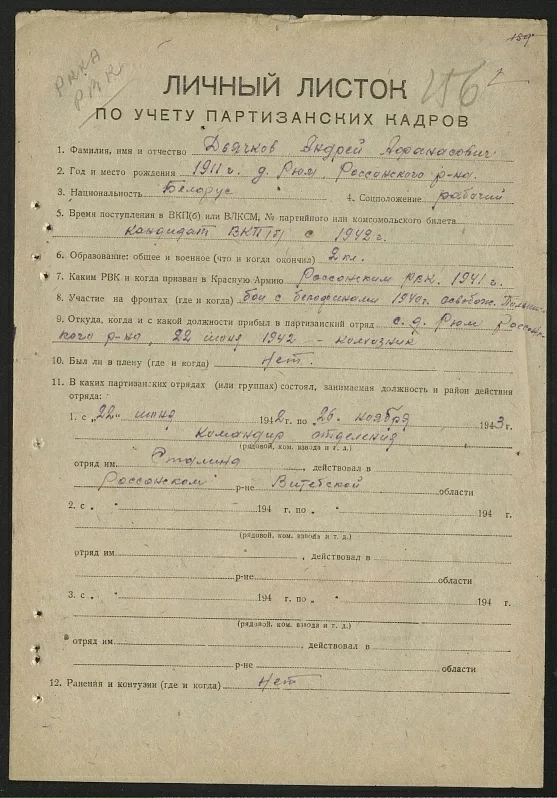 159
РККА
РВК
456
ЛИЧНЫЙ ЛИСТОК
ПО УЧЕТУ ПАРТИЗАНСКИХ КАДРОВ
1. Фамилия, имя и отчество Дьячков Андрей Афанасович
2. Год и место рождения 1911 г. д. Рюм, Россонского р-на.
3. Национальность Белорус 4. Соцположение рабочий
5. Время поступления в ВКП(б) или ВЛКСМ, № партийного или комсомольского билета
кандидат ВКП(б) с 1942 г.
6. Образование: общее и военное (что и когда окончил) 2 кл.
7. Каким РВК и когда призван в Красную Армию Россонским РВК. 1941 г.
8. Участие на фронтах (где и когда) бои с белофинами 1940 г. освобож.
9. Откуда, когда и с какой должности прибыл в партизанский отряд с. д. Рюм Россон-
ского р-на, 22 июня 1942 - колхозник
10. Был ли в плену (где и когда) Нет.
11. В каких партизанских отрядах (или группах) состоял, занимаемая должность и район действия
отряда:
1. с „22" июня 1942 г. по „26" ноября 1943 г.
командир отделения
(рядовой, ком. взвода и т. д.)
отряд им. Сталина, действовал в
Россонском р-не Витебской области
2. с „ " 194 г. по „ " 194 г.
(рядовой, ком. взвода и т. д.)
отряд им. , действовал в
р-не области
3. с „ " 194 г. по „ " 194 г.
(рядовой, ком. взвода и т. д.)
отряд им. , действовал в
р-не области
12. Ранения и контузии (где и когда) Нет